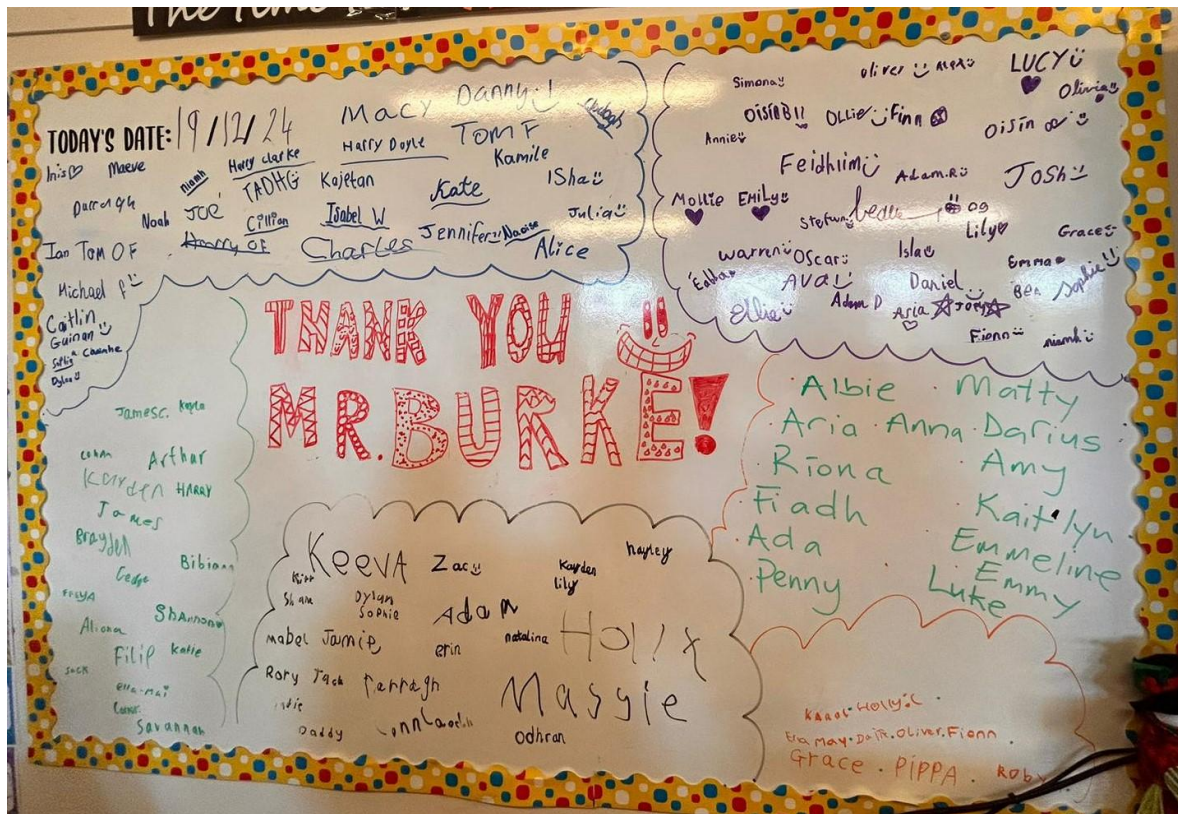 The Time
TODAY'S DATE: 19/12/24
Macy Danny
Inis♡ Maeve Niamh Harry Clarke Harry Doyle TOM F
TADHG Kajetan Kamile
Darragh Noah JOE Cillian Isabel W Kate ISha
Ian Tom OF Harry OF Charles Jennifer Naoise Julia
Alice
Michael P
Caitlin
Guinan
Sofia Caoimhe
Dylan
Simona Oliver Alex LUCY
Olivia
OISÍN B!! OLLie Finn Oisín
Annie
Feidhlim Adam.R JOSh
Mollie EMILY
Stefan OG
Lily Grace
Warren Oscar Isla
Éabha AVA Daniel Emma
Ellie Adam D Aria Joey Ben Sophie
Fionn niamh
THANK YOU
MR. BURKE!
Jamesc. Kayla
Arthur
Kayden HARRY
James
Brayden
Bibiana
FREYA Shannon
Aliona
Filip Katie
Jack
ella-mai
Savannah
KeevA Zac Kayden hayley
lily
Shane Dylan
Sophie Adam
mabel Jamie erin natalina Holly
Rory Jack Darragh Maggie
Indie
Daddy Odhran
Albie · Matty
Aria Anna · Darius
Ríona · Amy
Fiadh · Kaitlyn
Ada · Emmeline
Penny · Emmy
Luke
Karol · Holly.C
Ella May · Daire. Oliver. Fionn .
Grace · PIPPA . Roby